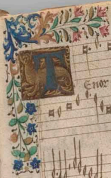 T
Enor